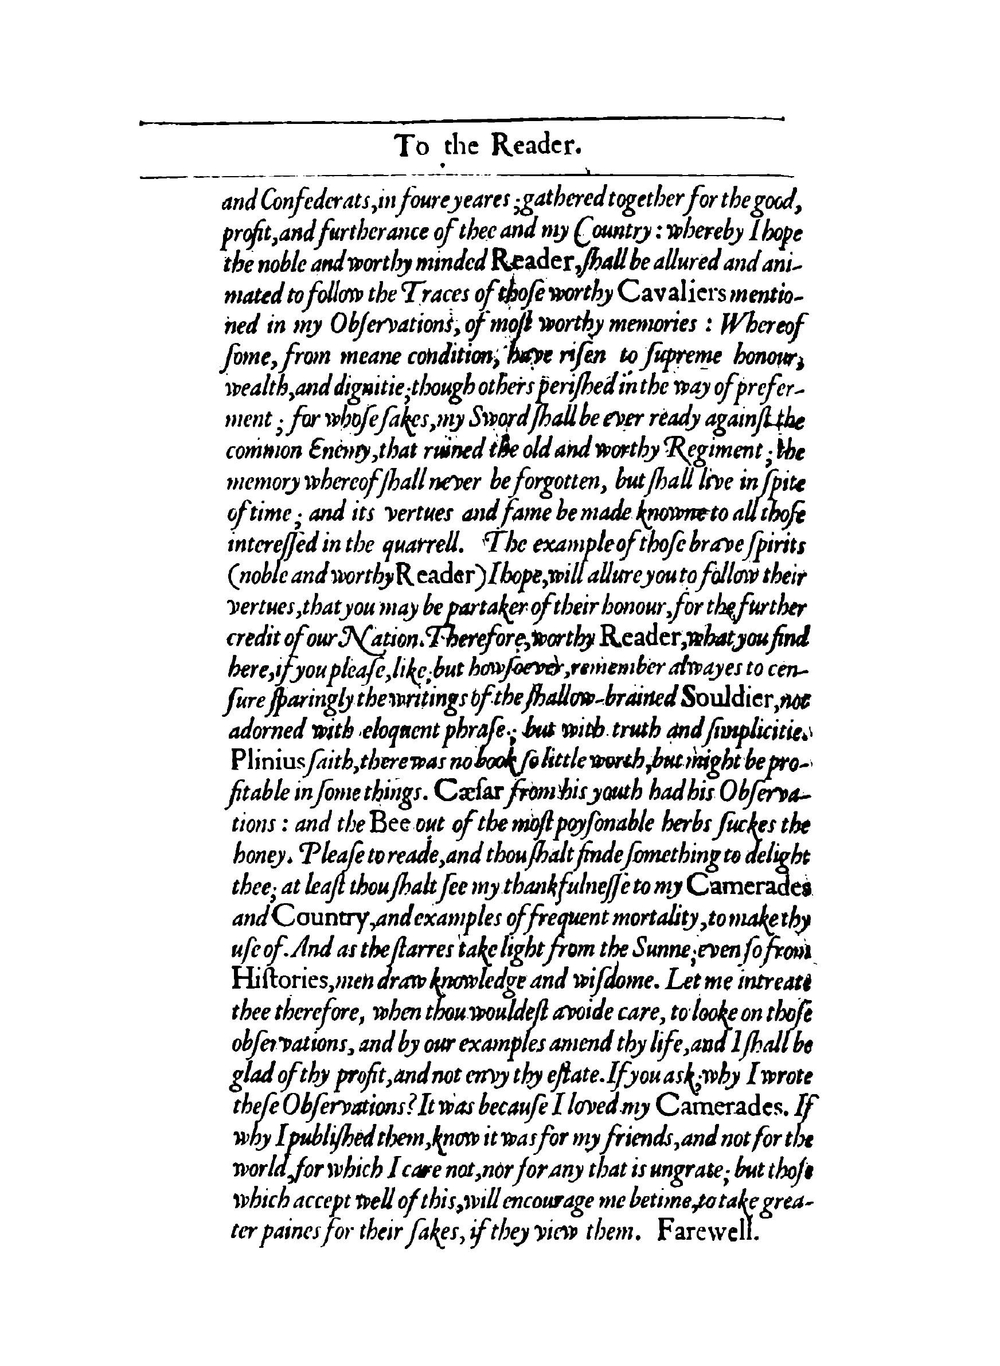 To the Reader.
and Confederats, in foure yeares ; gathered together for the good,
profit, and furtherance of thee and my Country : whereby I hope
the noble and worthy minded Reader, ſhall be allured and ani-
mated to follow the Traces of thoſe worthy Cavaliers mentio-
ned in my Obſervations, of moſt worthy memories : Whereof
ſome, from meane condition, have riſen to ſupreme honour,
wealth, and dignitie; though others periſhed in the way of prefer-
ment ; for whoſe ſakes, my Sword ſhall be ever ready againſt the
common Enemy, that ruined the old and worthy Regiment ; the
memory whereof ſhall never be forgotten, but ſhall live in ſpite
of time ; and its vertues and fame be made knowne to all thoſe
intereſſed in the quarrell. The example of thoſe brave ſpirits
(noble and worthy Reader) I hope, will allure you to follow their
vertues, that you may be partaker of their honour, for the further
credit of our Nation. Therefore, worthy Reader, what you find
here, if you pleaſe, like; but howſoever, remember alwayes to cen-
ſure ſparingly the writings of the ſhallow-brained Souldier, not
adorned with eloquent phraſe ; but with truth and ſimplicitie.
Plinius ſaith, there was no book ſo little worth, but might be pro-
fitable in ſome things. Cæſar from his youth had his Obſerva-
tions : and the Bee out of the moſt poyſonable herbs ſuckes the
honey. Pleaſe to reade, and thou ſhalt finde ſomething to delight
thee; at leaſt thou ſhalt ſee my thankfulneſſe to my Camerades
and Country, and examples of frequent mortality, to make thy
uſe of. And as the ſtarres take light from the Sunne; even ſo from
Hiſtories, men draw knowledge and wiſdome. Let me intreate
thee therefore, when thou wouldeſt avoide care, to looke on thoſe
obſervations, and by our examples amend thy life, and I ſhall be
glad of thy profit, and not envy thy eſtate. If you ask, why I wrote
theſe Obſervations? It was becauſe I loved my Camerades. If
why I publiſhed them, know it was for my friends, and not for the
world, for which I care not, nor for any that is ungrate; but thoſe
which accept well of this, will encourage me betime, to take grea-
ter paines for their ſakes, if they view them. Farewell.